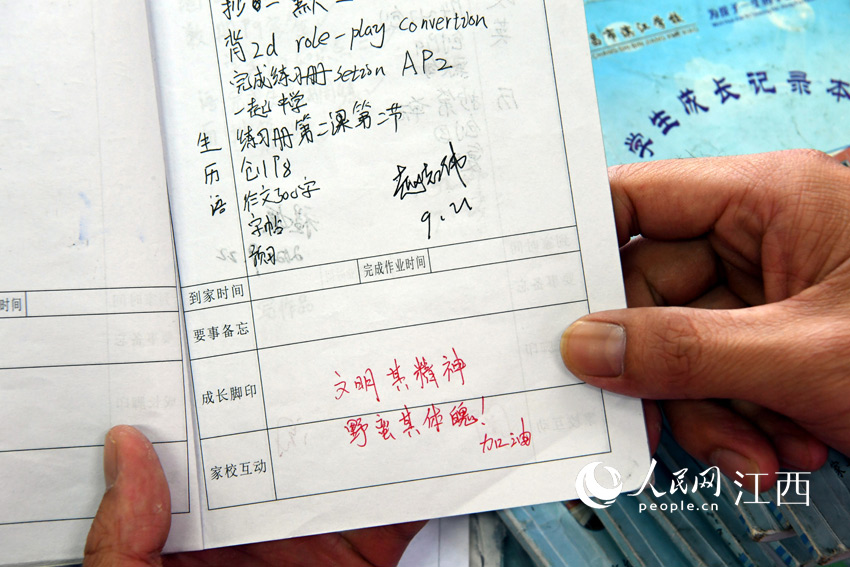 背2d role-play convertion
完成练习册 setion AP2
一起中学
生 练习册第二课第二节
历
语 作文300字
字帖
预习
9.21
时间
到家时间
完成作业时间
要事备忘
成长脚印
文明其精神
野蛮其体魄!
加油
家校互动
昌市滨江学校
学生成长记录本
人民网 江西
people.cn